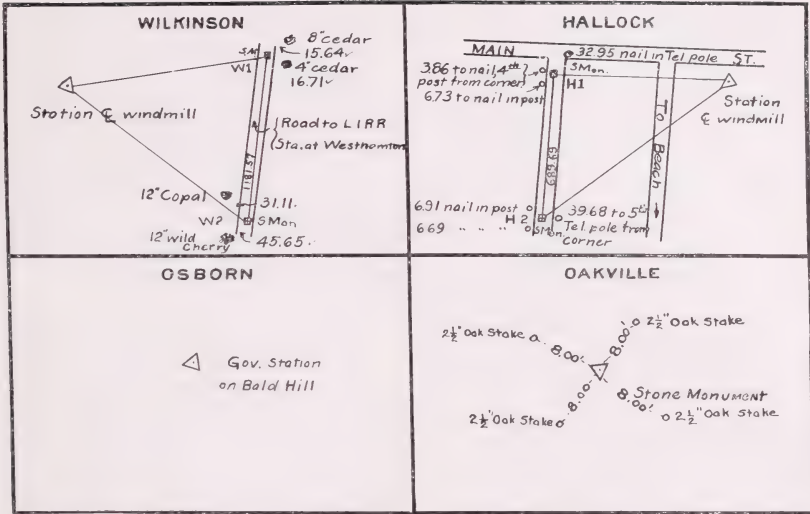 WILKINSON
8" cedar
15.64
S.M.
W1
4" cedar
16.71
Station ℄ windmill
Road to L I R R
Sta. at Westhampton
1181.57
12" Copal
31.11
W2
S Mon
12" wild
cherry
45.65
HALLOCK
MAIN
32.95 nail in Tel pole
ST.
3.86 to nail, 4th
post from corner
S Mon.
H1
6.73 to nail in post
Station
℄ windmill
To Beach
689.69
6.91 nail in post
H 2
39.68 to 5th
669 " " "
S Mon
Tel. pole from
corner
OSBORN
Gov. Station
on Bald Hill
OAKVILLE
2½" Oak Stake
2½" Oak Stake
8.00'
8.00'
Stone Monument
8.00'
8.00'
2½" Oak Stake
2½" Oak Stake